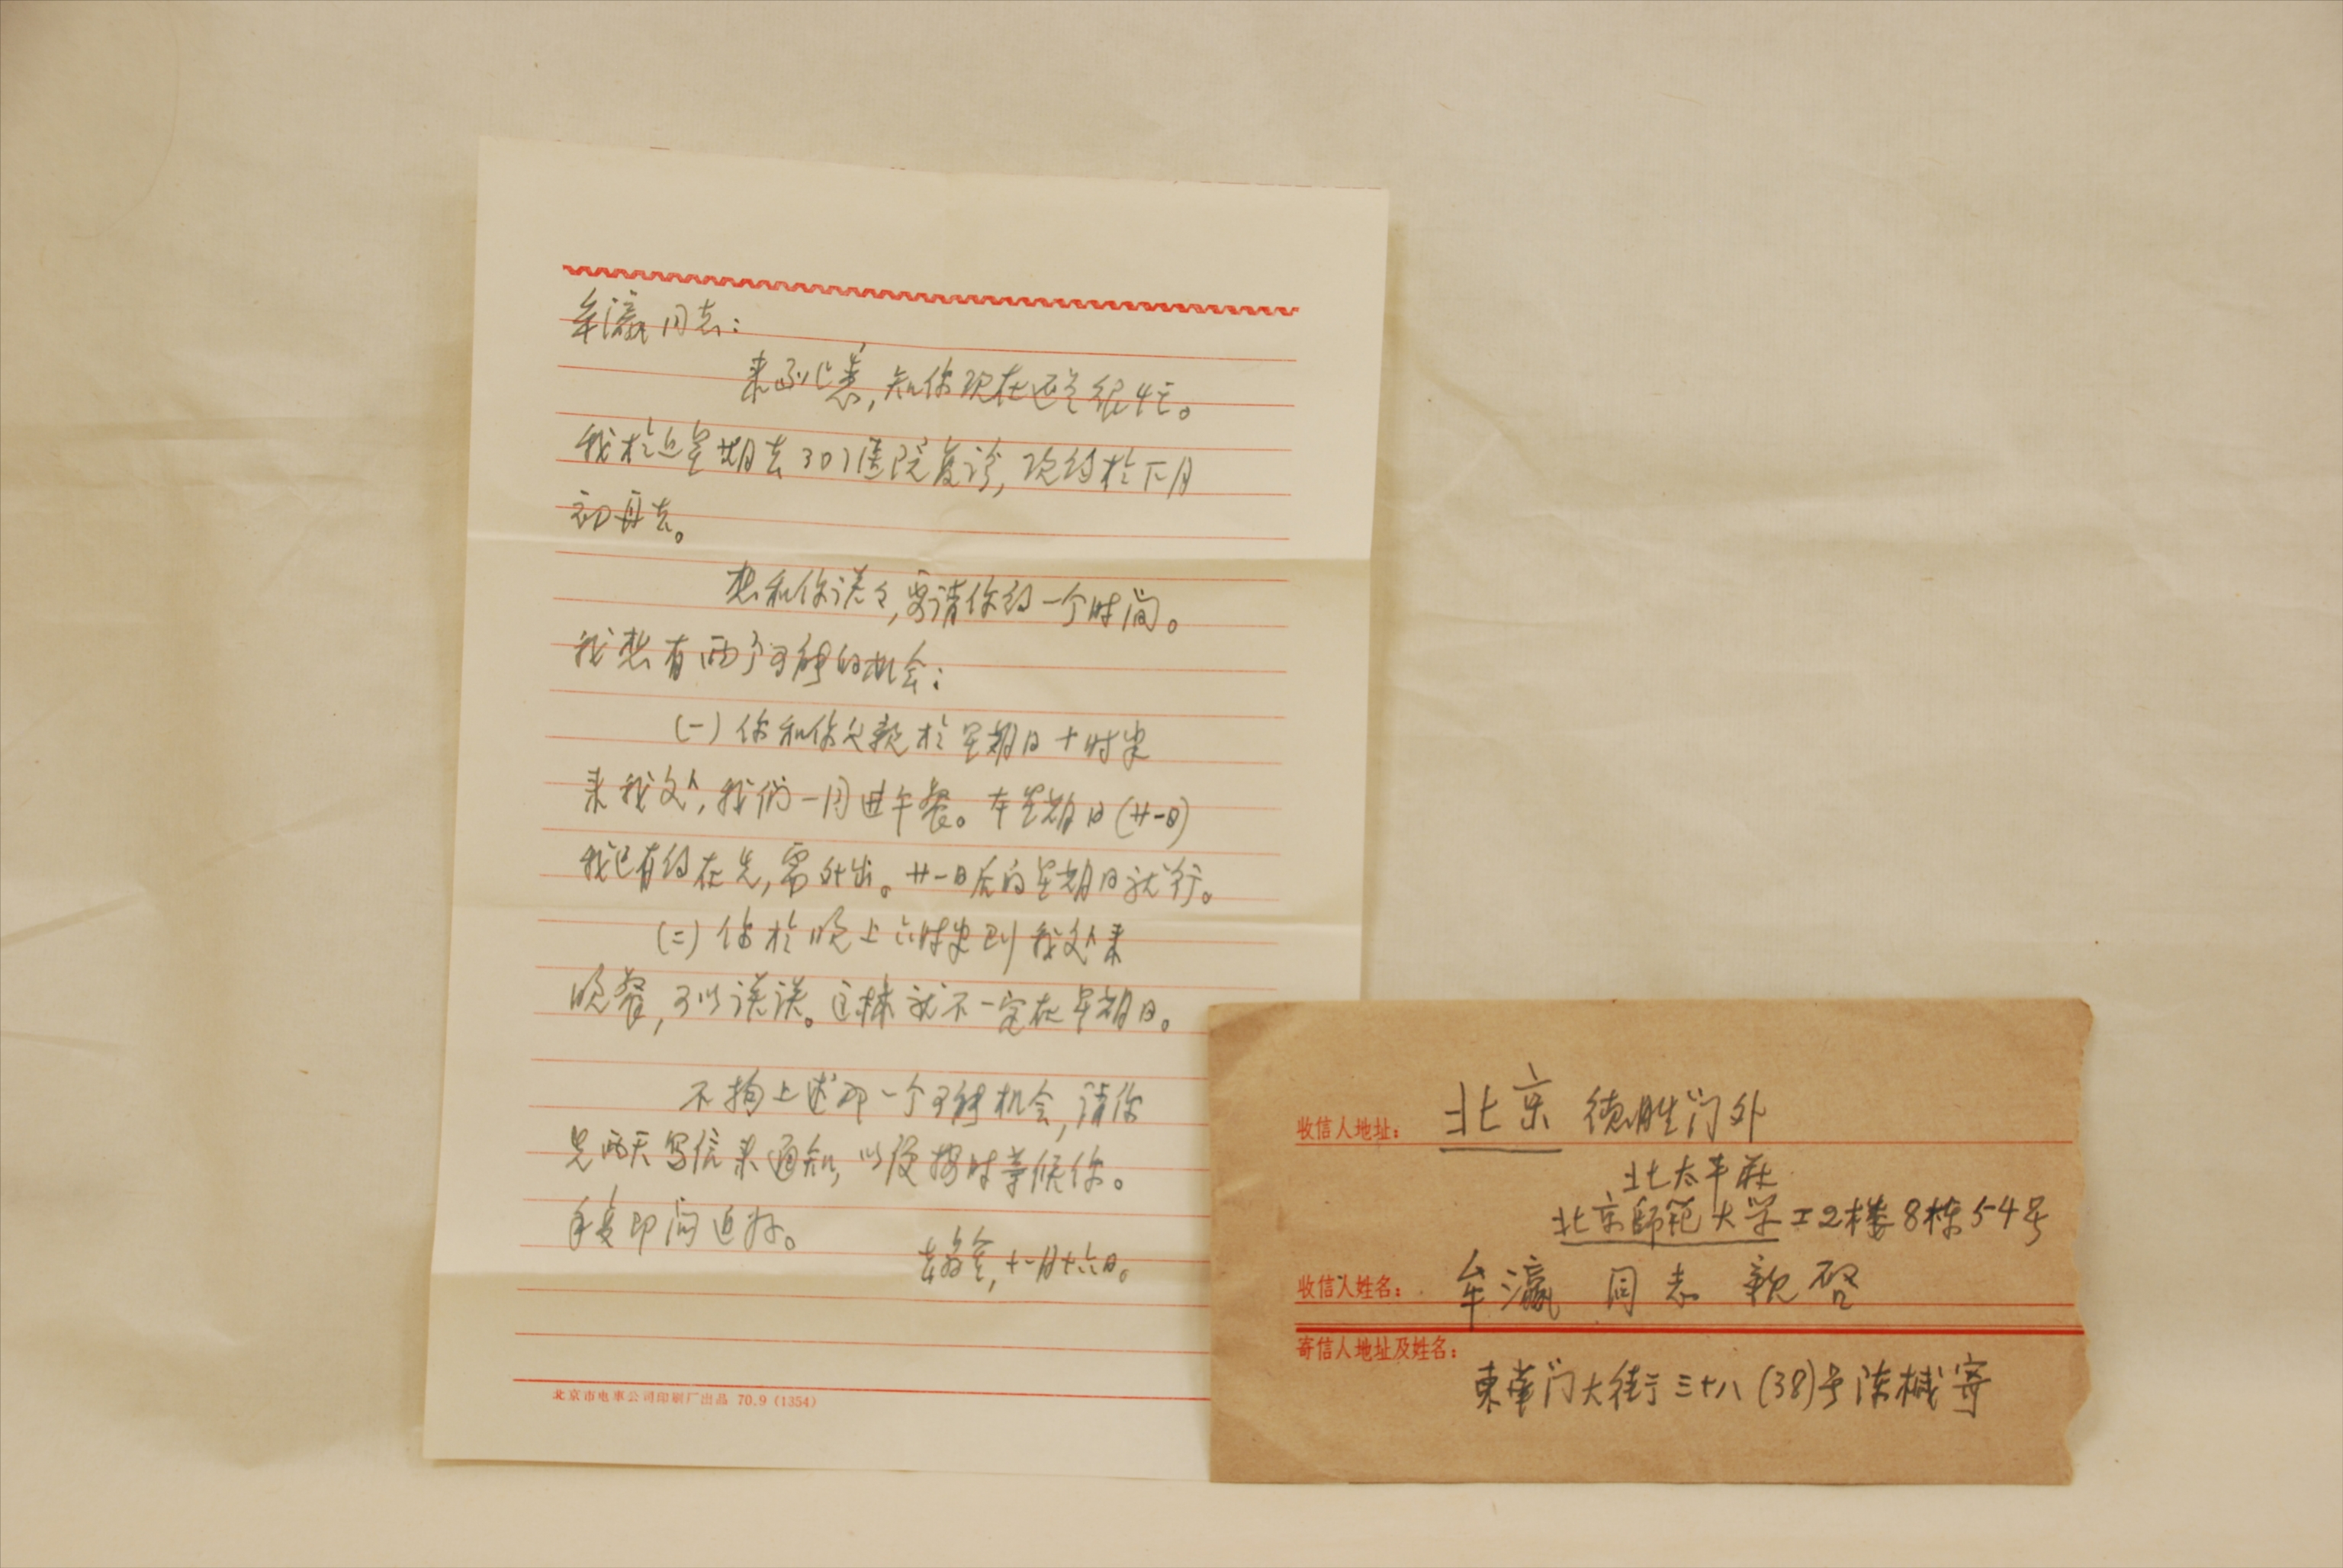 牟瀛同志：
来函收悉，知你现在还是很忙。
我於上星期去301医院复诊，现约於下月
初再去。
想和你谈谈，要请你约一个时间。
我想有两个可能的机会：
(一) 你和你父亲於星期日十时半
来我处，我们一同进午餐。本星期日(廿一日)
我已有约在先，需外出。廿一日后的星期日就行。
(二) 你於晚上六时半到我处来
晚餐，可以谈谈。这样就不一定在星期日。
不拘上述那一个可能机会，请你
先两天写信来通知，以便按时等候你。
手复即问近好。
十一月十六日。
北京市电車公司印刷厂出品 70.9 (1354)
收信人地址： 北京 德胜门外
北太平莊
北京師范大学工2楼8栋54号
收信人姓名： 牟瀛 同志 親啓
寄信人地址及姓名：
大街三十八(38)号陈械寄